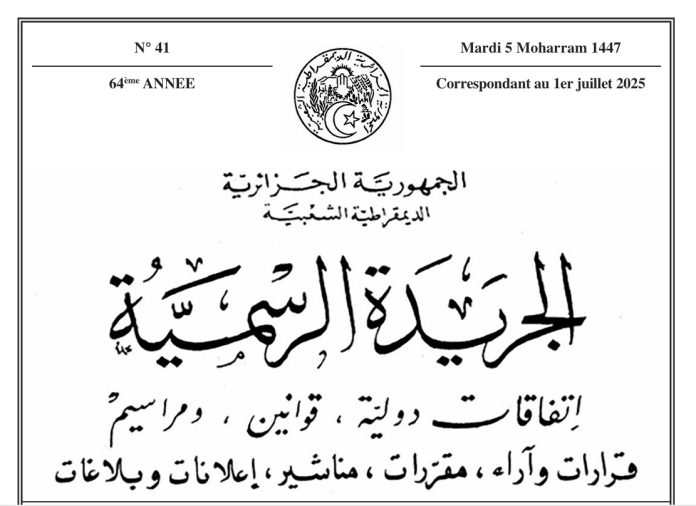 N° 41
Mardi 5 Moharram 1447
64ème ANNEE
Correspondant au 1er juillet 2025
الجمهوريّة الجزائريّة
الديمقراطيّة الشعبيّة
الجريدة الرسميّة
إتفاقات دوليّة ، قوانين ، ومراسيم
قرارات وآراء ، مقرّرات ، مناشير ، إعلانات وبلاغات